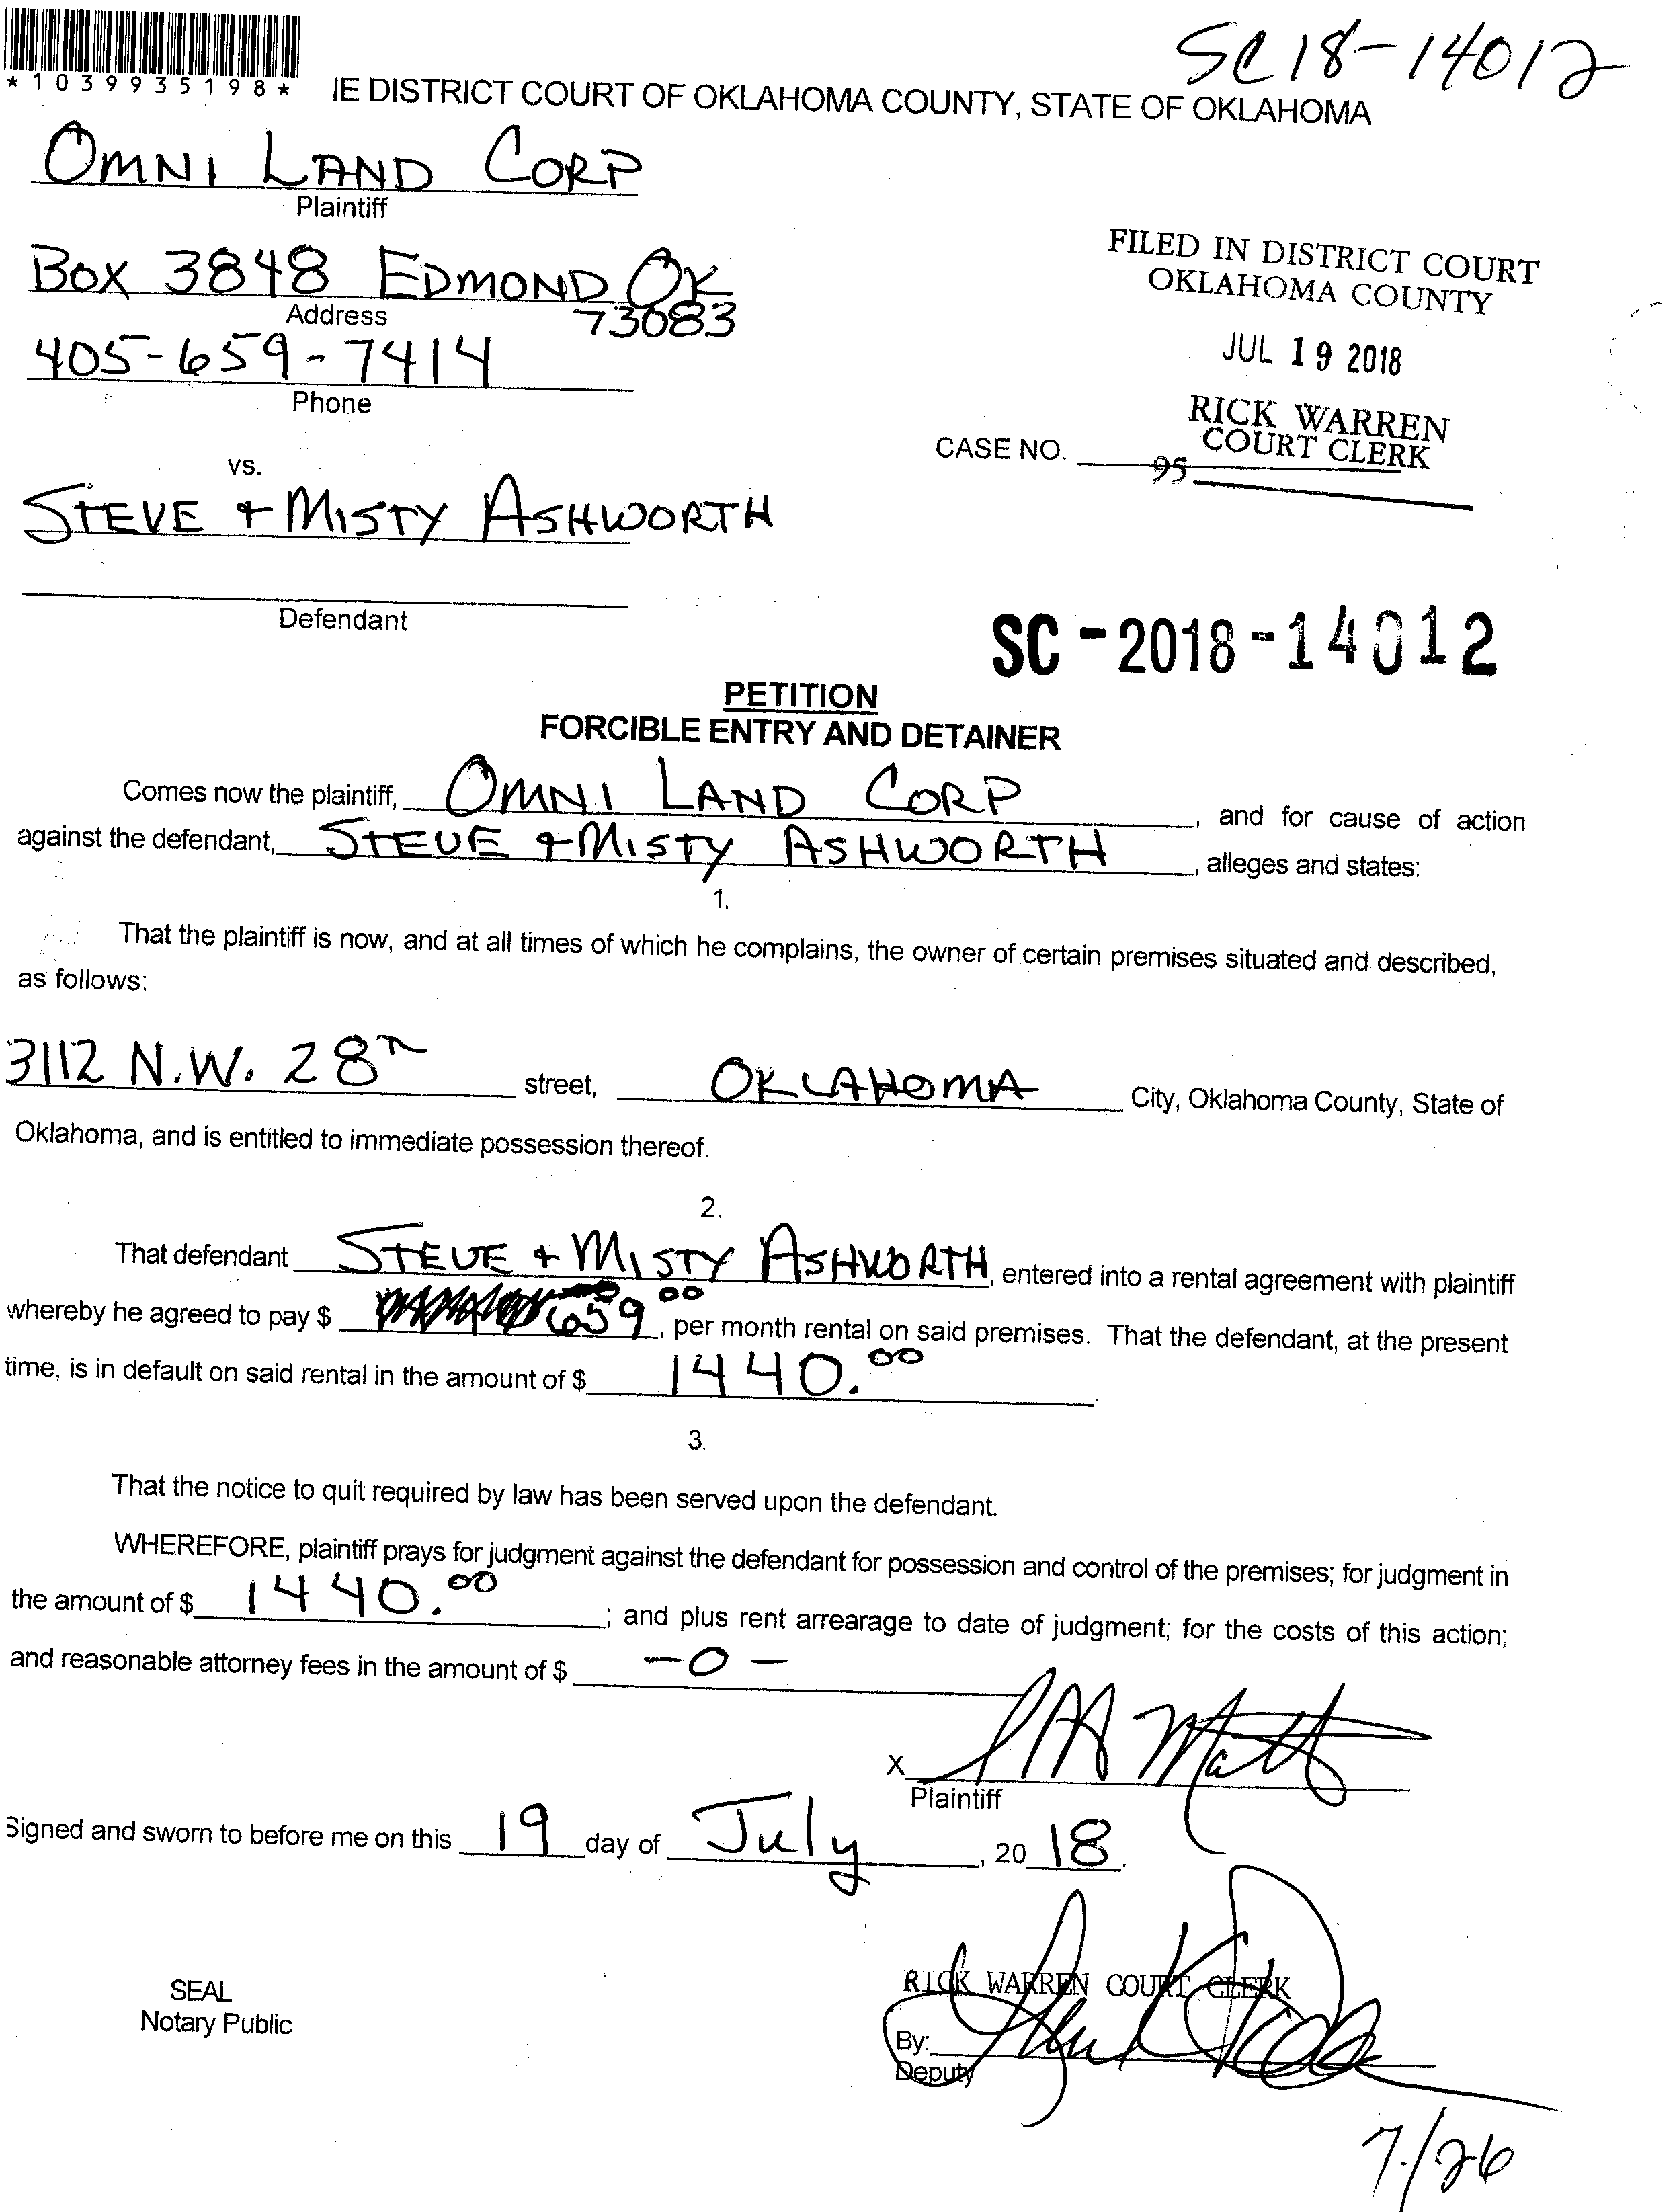 SC18-14012
*1039935198*
IE DISTRICT COURT OF OKLAHOMA COUNTY, STATE OF OKLAHOMA
OMNI LAND CORP
Plaintiff
BOX 3848 EDMOND OK
73083
Address
405-659-7414
Phone
FILED IN DISTRICT COURT
OKLAHOMA COUNTY
JUL 19 2018
RICK WARREN
COURT CLERK
CASE NO.
95
vs.
STEVE + MISTY ASHWORTH
Defendant
SC-2018-14012
PETITION
FORCIBLE ENTRY AND DETAINER
Comes now the plaintiff, OMNI LAND CORP, and for cause of action
against the defendant, STEVE + MISTY ASHWORTH, alleges and states:
1.
That the plaintiff is now, and at all times of which he complains, the owner of certain premises situated and described,
as follows:
3112 N.W. 28TH street, OKLAHOMA City, Oklahoma County, State of
Oklahoma, and is entitled to immediate possession thereof.
2.
That defendant STEVE + MISTY ASHWORTH, entered into a rental agreement with plaintiff
whereby he agreed to pay $ 659.00, per month rental on said premises. That the defendant, at the present
time, is in default on said rental in the amount of $ 1440.00.
3.
That the notice to quit required by law has been served upon the defendant.
WHEREFORE, plaintiff prays for judgment against the defendant for possession and control of the premises; for judgment in
the amount of $ 1440.00; and plus rent arrearage to date of judgment; for the costs of this action;
and reasonable attorney fees in the amount of $ -0-
X
Plaintiff
Signed and sworn to before me on this 19 day of July, 2018.
RICK WARREN COURT CLERK
SEAL
Notary Public
By:
Deputy
7/26